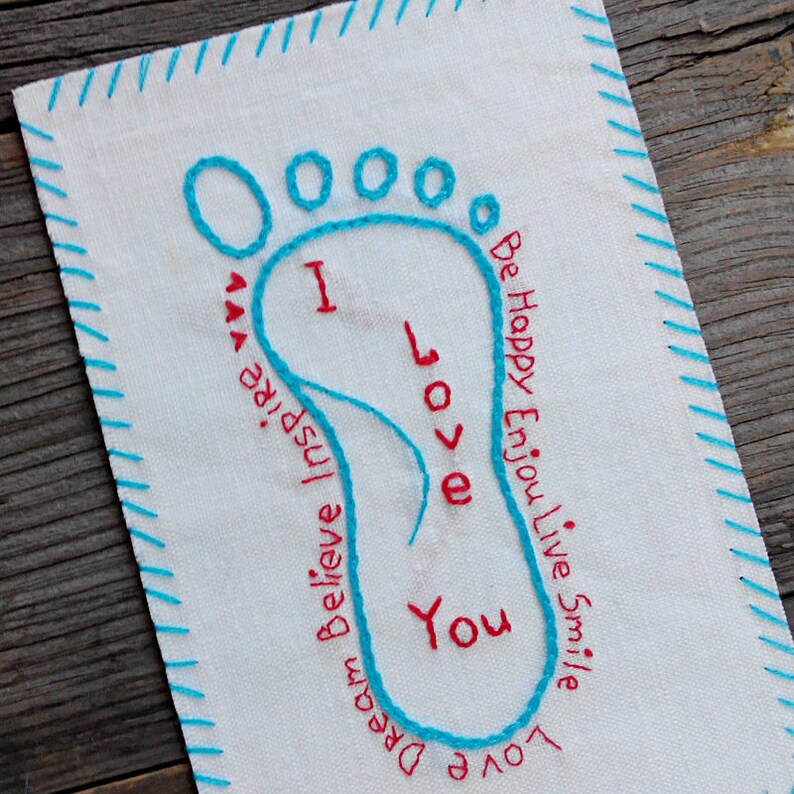 I
Love
You
Be Happy Enjou Live Smile Love DReam Believe InspiRe